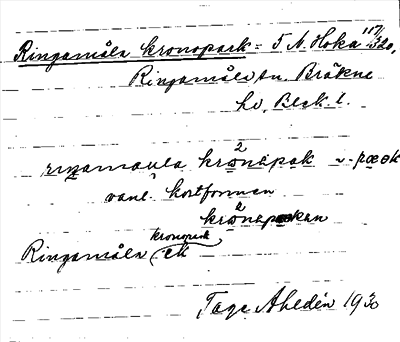 Ringamåla kronopark = T N. Hoka 117/320,
Ringamåla sn. Bräkne
hd, Blek. l.
rɪŋamaula kränapak ~ -pæək
vanl. kortformen
kränapækan
Ringamåla kronopark ek
Tage Ahldén 1930